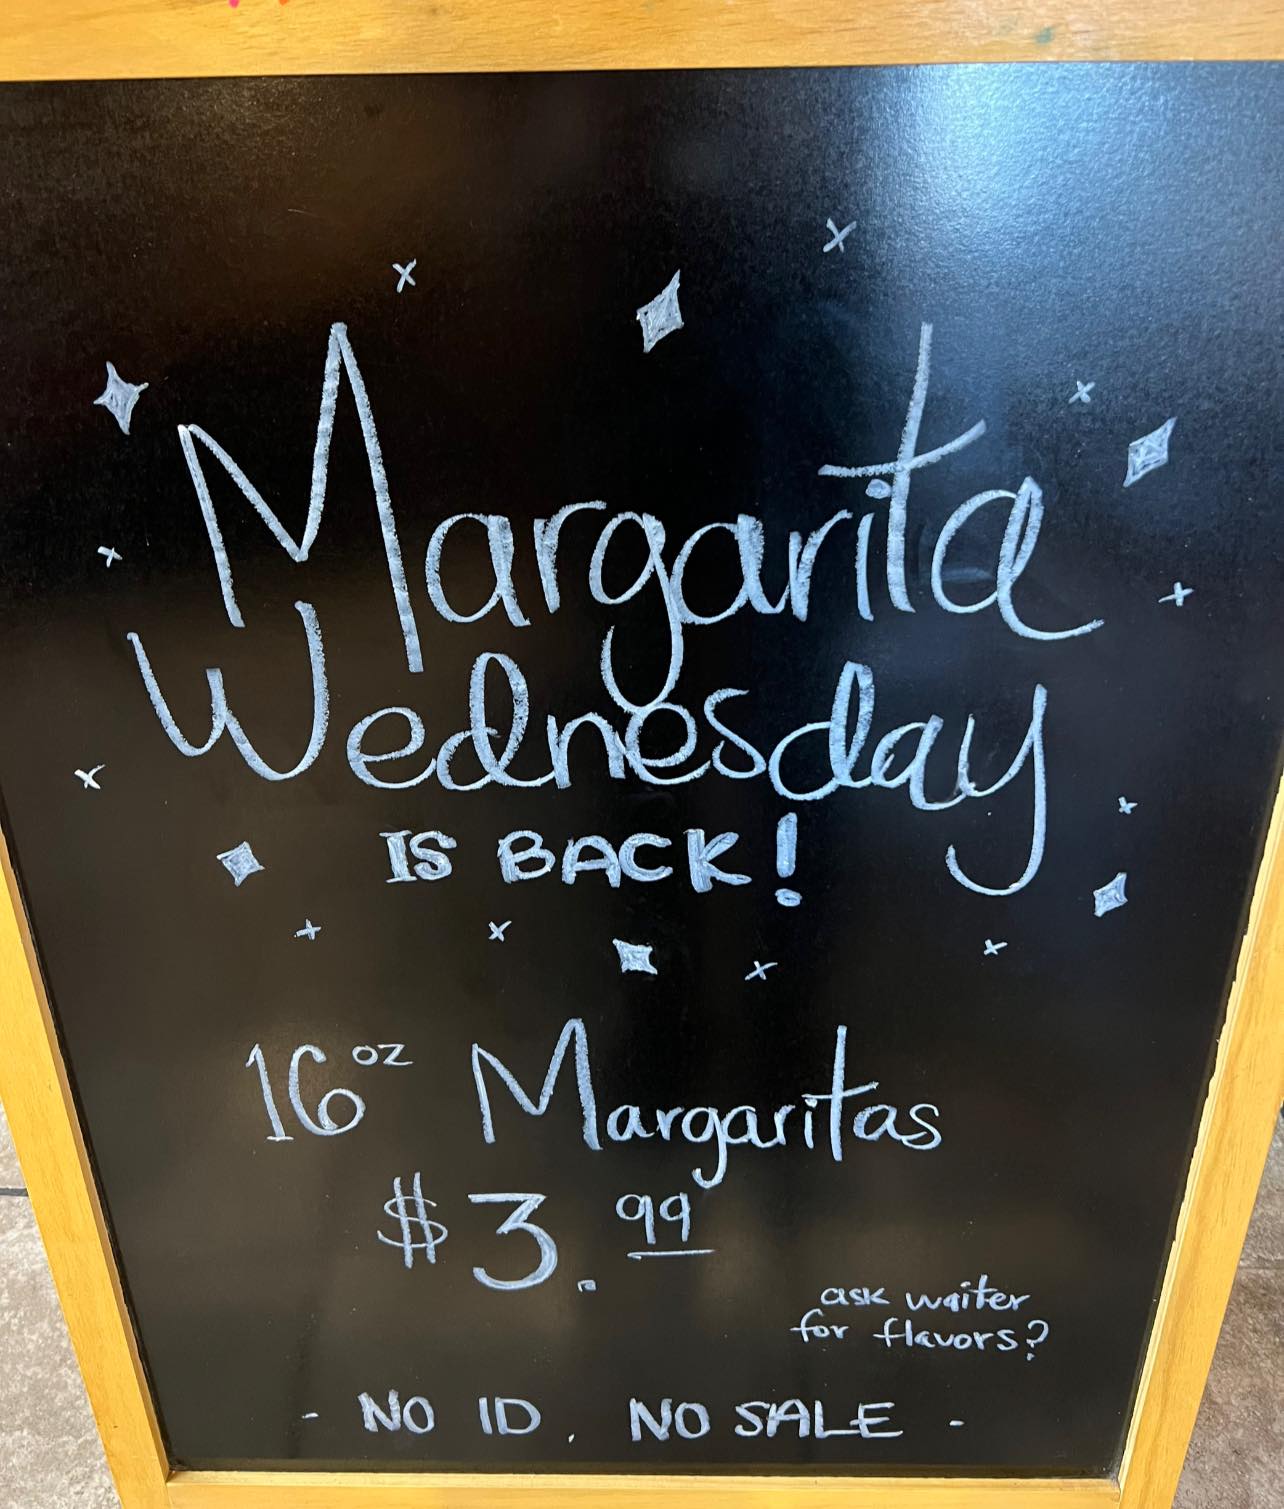 Margarita
Wednesday
IS BACK!
16 oz Margaritas
$3.99
ask waiter
for flavors?
- NO ID, NO SALE -